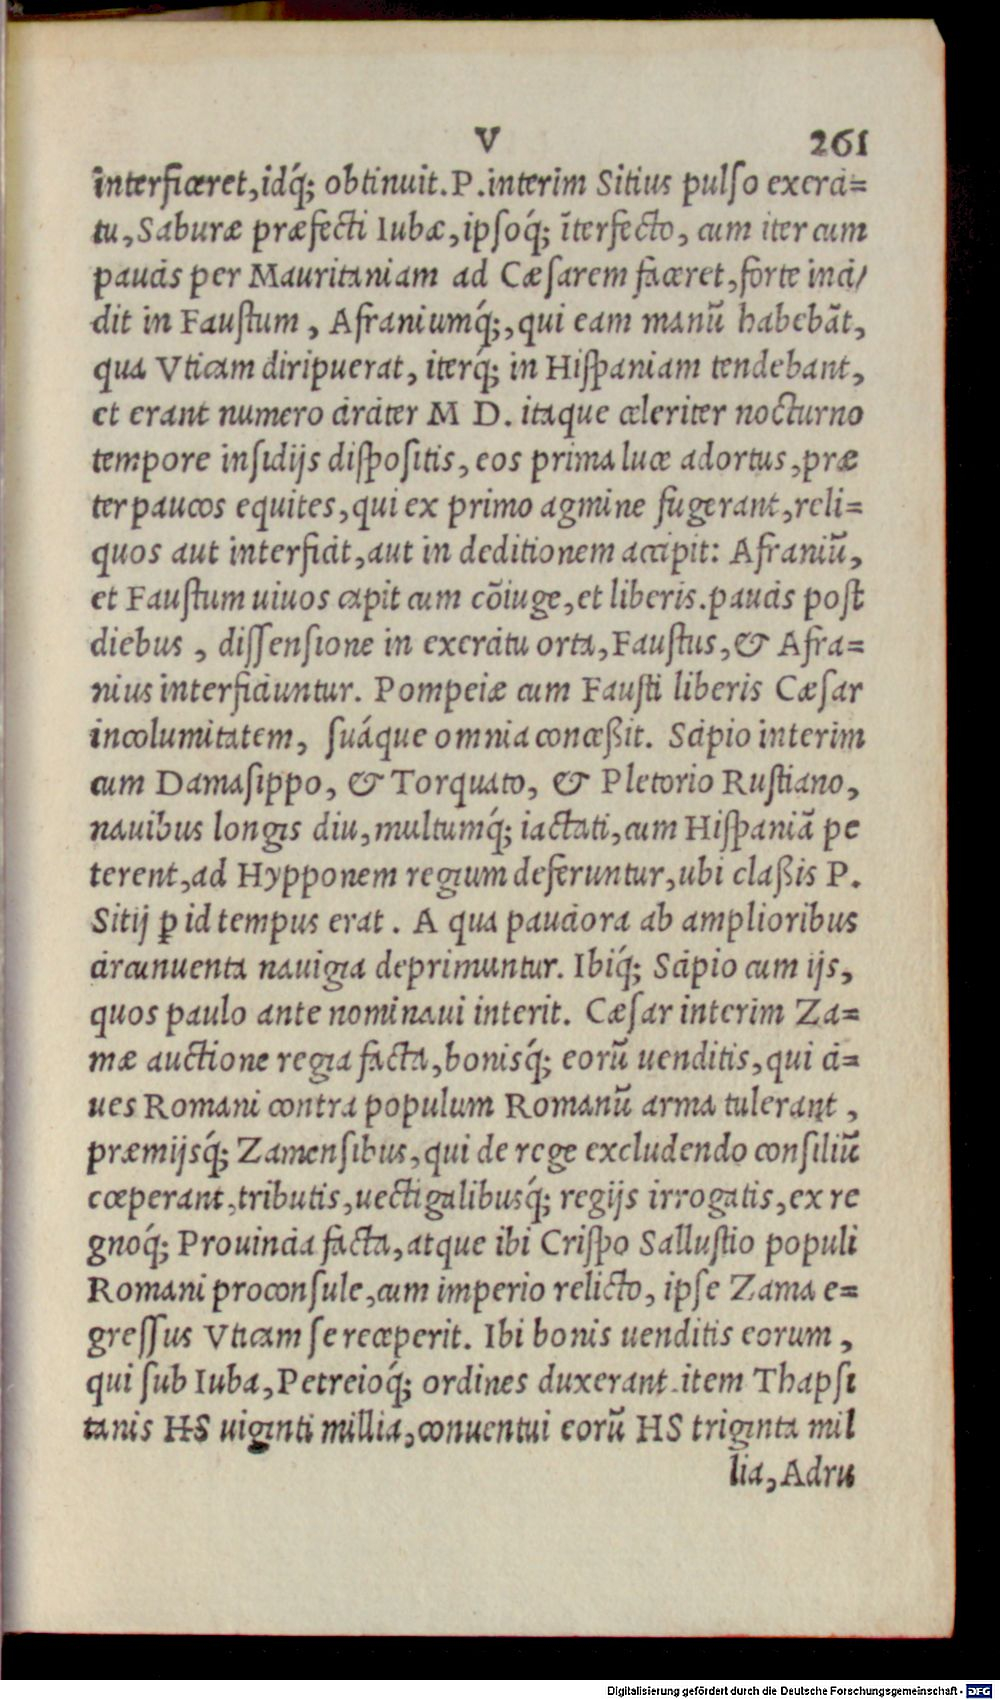 V 261
interficeret,idq́; obtinuit.P.interim Sitius pulſo exerci=
tu,Saburæ præfecti Iubæ,ipſoq́; ĩterfecto, cum iter cum
paucis per Mauritaniam ad Cæſarem faceret,forte inci/
dit in Fauſtum , Afraniumq́;,qui eam manũ habebãt,
qua Vticam diripuerat, iterq́; in Hiſpaniam tendebant,
et erant numero circiter M D. itaque celeriter nocturno
tempore inſidijs diſpoſitis, eos prima luce adortus,præ
ter paucos equites,qui ex primo agmine fugerant,reli=
quos aut interficit,aut in deditionem accipit: Afraniũ,
et Fauſtum uiuos capit cum cõiuge,et liberis.paucis poſt
diebus , diſſenſione in exercitu orta,Fauſtus,& Afra=
nius interficiuntur. Pompeiæ cum Fauſti liberis Cæſar
incolumitatem, ſuáque omnia conceßit. Scipio interim
cum Damaſippo, & Torquato, & Pletorio Ruſtiano,
nauibus longis diu,multumq́; iactati,cum Hiſpaniã pe
terent,ad Hypponem regium deferuntur,ubi claßis P.
Sitij ꝑ id tempus erat . A qua pauciora ab amplioribus
circunuenta nauigia deprimuntur. Ibiq́; Scipio cum ijs,
quos paulo ante nominaui interit. Cæſar interim Za=
mæ auctione regia facta,bonisq́; eorũ uenditis,qui ci=
ues Romani contra populum Romanũ arma tulerant ,
præmijsq́; Zamenſibus,qui de rege excludendo conſiliũ
cœperant,tributis,uectigalibusq́; regijs irrogatis,ex re
gnoq́; Prouincia facta,atque ibi Criſpo Salluſtio populi
Romani proconſule,cum imperio relicto, ipſe Zama e=
greſſus Vticam ſe receperit. Ibi bonis uenditis eorum ,
qui ſub Iuba,Petreioq́; ordines duxerant.item Thapſi
tanis HS uiginti millia,conuentui eorũ HS triginta mil
lia,Adru
Digitalisierung gefördert durch die Deutsche Forschungsgemeinschaft - DFG